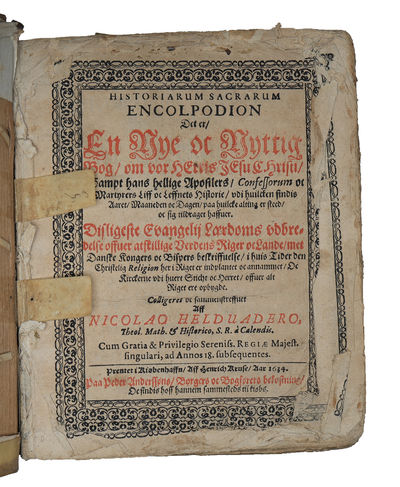 HISTORIARUM SACRARUM
ENCOLPODION
Det er/
En Nye oc Nyttig
Bog/ om vor HErris JEsu CHristi/
Sampt hans hellige Apostlers/ Confessorum oc
Martyrers Liff oc Leffnets Historie/ vdi huilcken findis
Aaret/ Maaneden oc Dagen/ paa huilcke alting er steed/
oc sig tildraget haffuer.
Disligeste Evangelij Lærdoms vdbre-
delse offuer atskillige Verdens Riger oc Lande/ met
Danske Kongers oc Bispers beskriffuelse/ i huis Tider den
Christelig Religion her i Riget er indplantet oc annammet/ Oc
Kirckerne vdi huert Sticht oc Herret/ offuer alt
Riget ere opbygde.
Colligeret oc sammenstreffuet
Aff
NICOLAO HELDUADERO,
Theol. Math. & Historico, S. R. à Calendis.
Cum Gratia & Privilegio Sereniss. REGIÆ Majest.
singulari, ad Annos 18. subsequentes.
Prentet i Kiøbenhaffn/ Aff Henrich Kruse/ Aar 1634.
Paa Peder Anderssøns/ Borgers oc Bogførers bekostning/
Oc findis hoff hannem sammesteds til kiøbs.